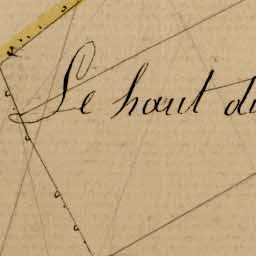 Le haut du